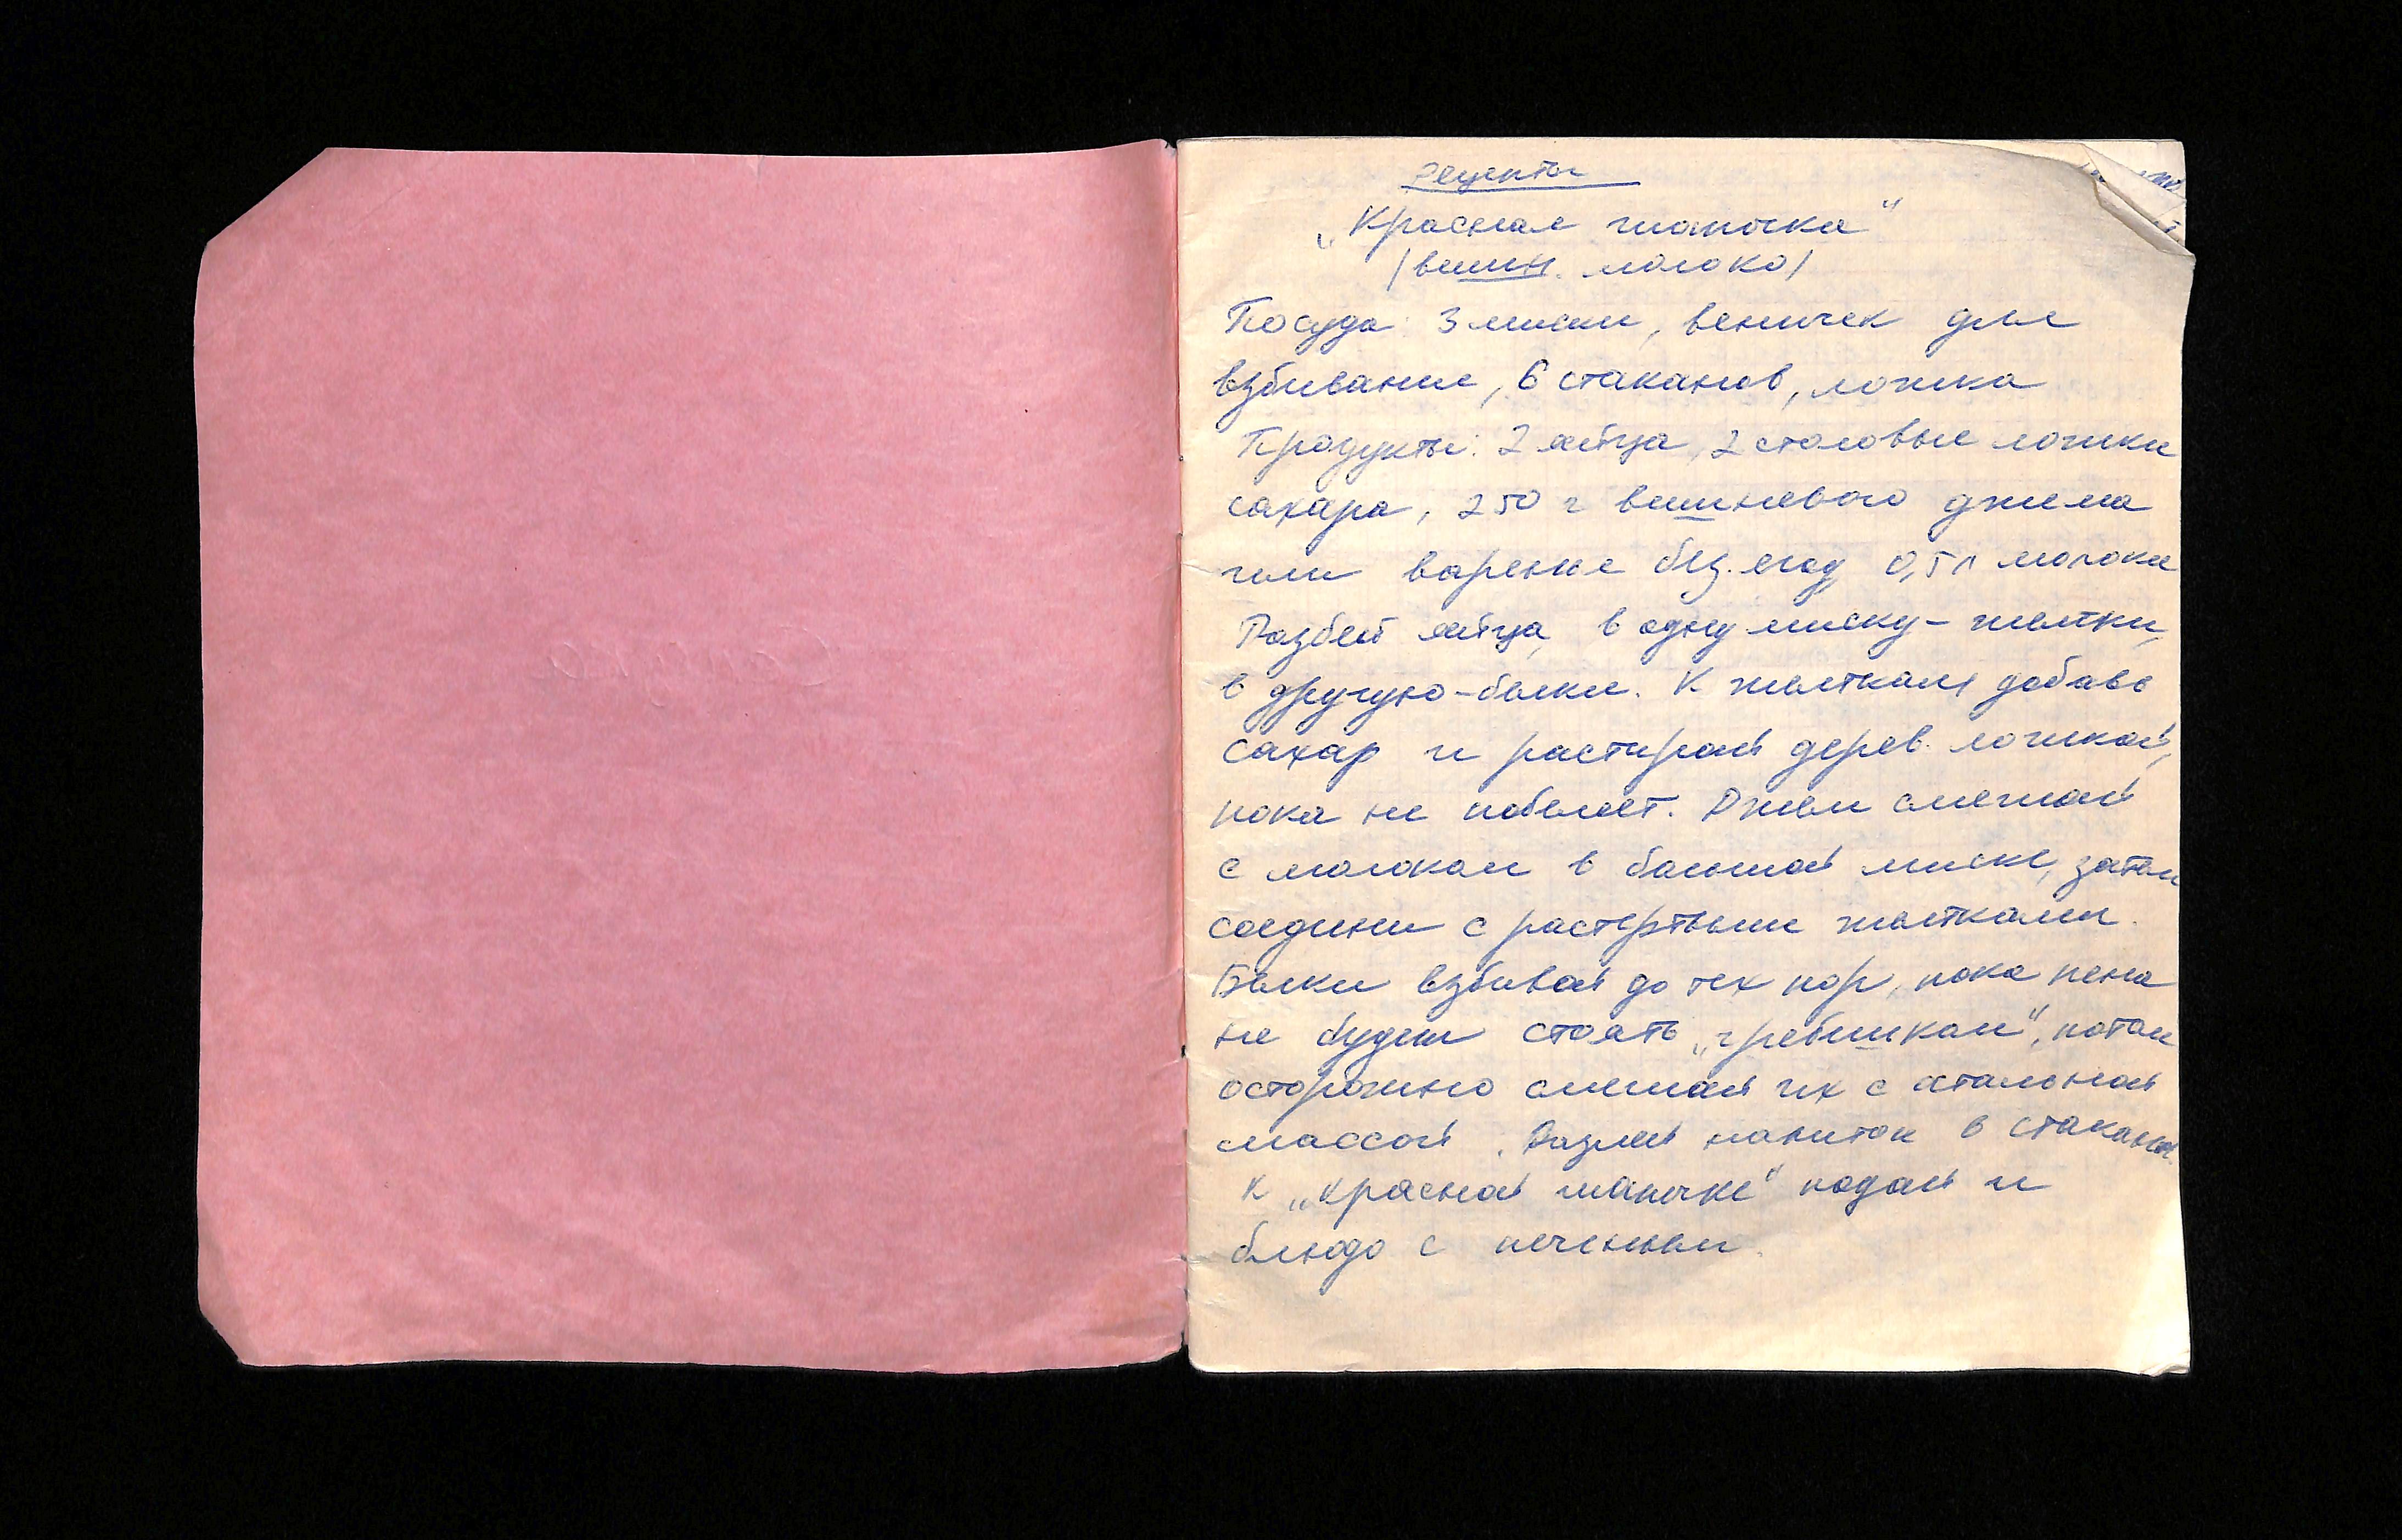 Рецепты
„Красная шапочка"
/вишн. молоко/
Посуда: 3 миски, веничек для
взбивания, 6 стаканов, ложка
Продукты: 2 яйца, 2 столовые ложки
сахара, 250 г вишневого джема
или варенье без ягод, 0,5 л молока
Разбей яйца, в одну миску - желтки,
в другую - белки. К желткам добавь
сахар и растирай дерев. ложкой,
пока не побелеет. Джем смешай
с молоком в большой миске, затем
соедини с растертыми желтками.
Белки взбивай до тех пор, пока пена
не будет стоять „гребешком", потом
осторожно смешай их с остальной
массой. Разлей напиток в стаканы.
К „Красной шапочке" подай и
блюдо с печеньем.